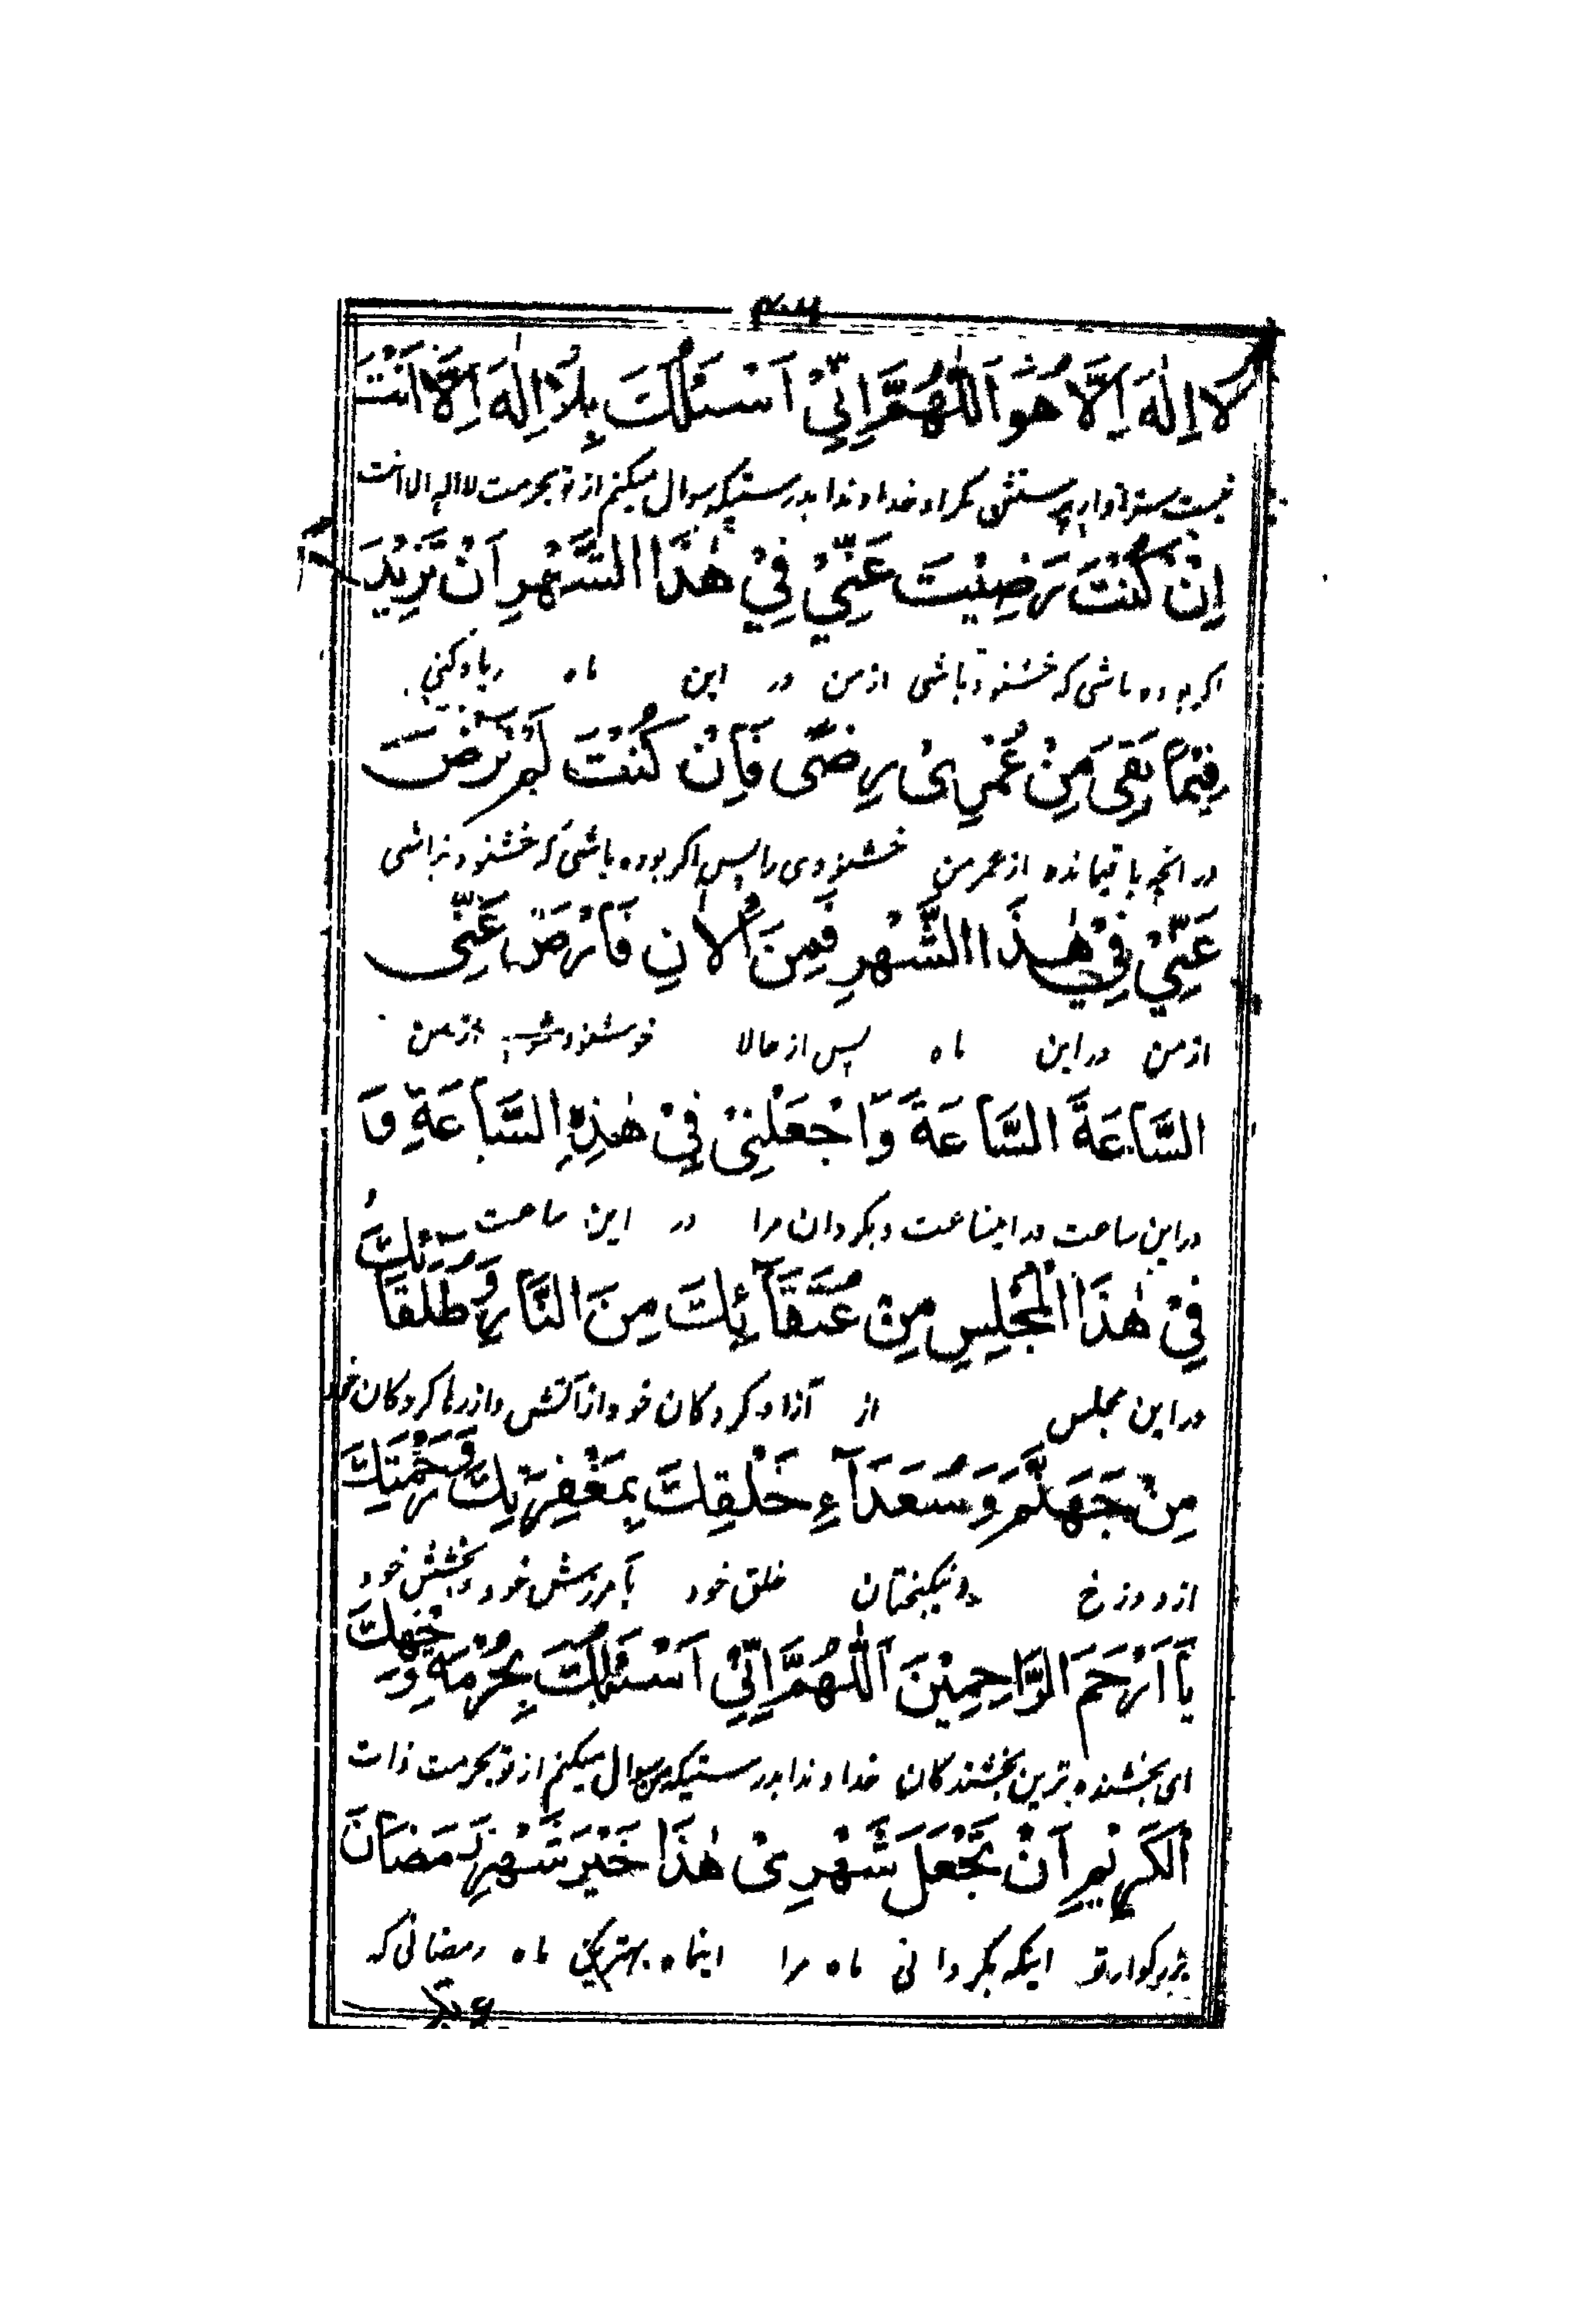 ۴۰۶
لَا اِلٰهَ اِلَّا هُوَ اَللّٰهُمَّ اِنِّيْ اَسْئَلُكَ بِلَا اِلٰهَ اِلَّا اَنْتَ
نیست سزاوار پرستشی مکر او خداوندا بدرستیکه سوال میکنم از تو بحرمت لا اله الا انت
اِنْ كُنْتَ رَضِيْتَ عَنِّيْ فِيْ هٰذَا الشَّهْرِ اَنْ تَزِيْدَ
اکر بوده باشی که خشنود باشی ازمن در این ماه زیاد کنی
فِيْمَا بَقِىَ مِنْ عُمْرِىْ رِضًى فَاِنْ كُنْتَ لَمْ تَرْضَ
در انچه باقیمانده از عمر من خشنودی را پس اکر بوده باشی که خشنود نباشی
عَنِّيْ فِيْ هٰذَا الشَّهْرِ فَمِنَ الْاٰنِ فَارْضَ عَنِّى
ازمن در این ماه پس از حالا خوشنود شو ازمن
السَّاعَةَ السَّاعَةَ السَّاعَةَ وَاجْعَلْنِىْ فِىْ هٰذِهِ السَّاعَةِ وَ
در این ساعت در اینساعت و بکردان مرا در این ساعت
فِىْ هٰذَا الْمَجْلِسِ مِنْ عُتَقَآئِكَ مِنَ النَّارِ وَ طُلَقَائِكَ
در این مجلس از آزاد کردکان خود از آتش و از رها کردکان خود
مِنْ جَهَنَّمَ وَ سُعَدَآءِ خَلْقِكَ بِمَغْفِرَتِكَ وَ رَحْمَتِكَ
از دوزخ و نیکبختان خلق خود بآمرزش خود و بخشش خود
يَا اَرْحَمَ الرَّاحِمِيْنَ اَللّٰهُمَّ اِنِّيْ اَسْئَلُكَ بِحُرْمَةِ وَجْهِكَ
ای بخشنده ترین بخشندکان خداوندا بدرستیکه من سوال میکنم از تو بحرمت ذات
الْكَرِيْمِ اَنْ تَجْعَلَ شَهْرِىْ هٰذَا خَيْرَ شَهْرِ رَمَضَانَ
بزرکوار تو اینکه بکردانی ماه مرا اینماه بهترین ماه رمضانی که